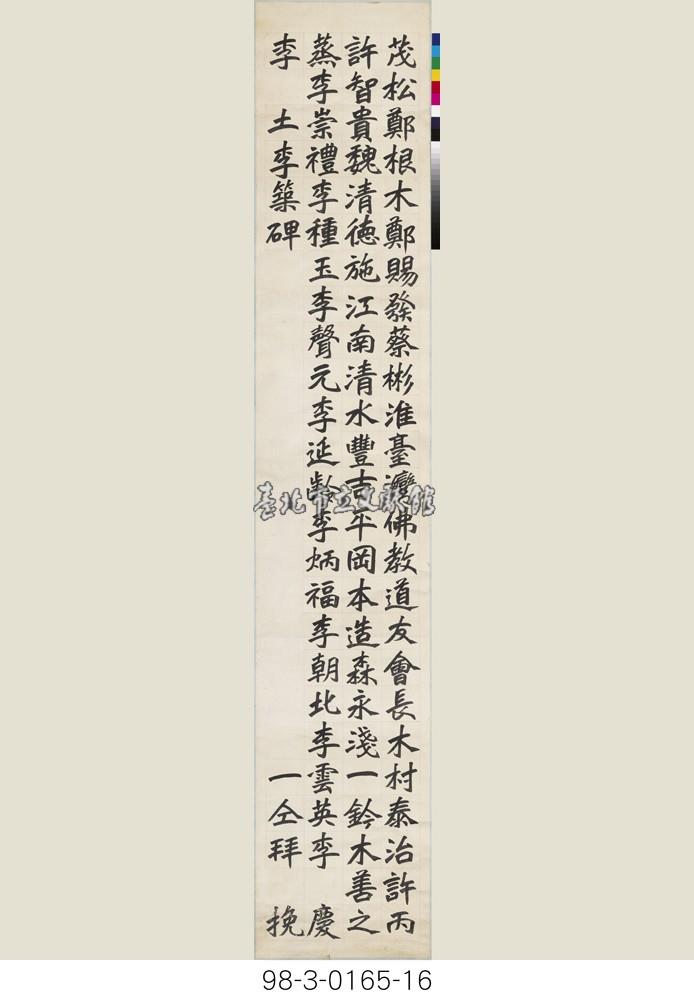 茂松鄭根木鄭賜發蔡彬淮臺灣佛教道友會長木村泰治許丙
許智貴魏清德施江南清水豐吉年岡本造森永淺一鈴木善之
蒸李崇禮李種玉李聲元李延齡李炳福李朝北李雲英李 慶
李 土李築碑 一仝拜 挽
臺北市立文獻館
98-3-0165-16